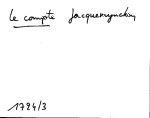 le compte Jacqueminckin
1724/3